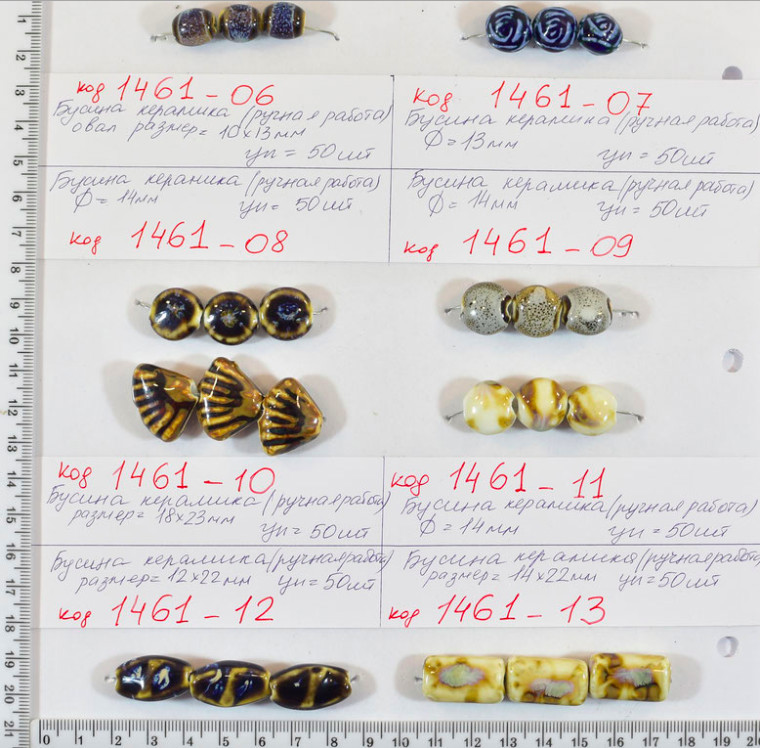 код 1461-06
Бусина керамика (ручная работа)
овал размер = 10x13мм
уп = 50шт
код 1461-07
Бусина керамика (ручная работа)
Ф = 13мм
уп = 50шт
Бусина керамика (ручная работа)
Ф = 14мм уп = 50шт
код 1461-08
Бусина керамика (ручная работа)
Ф = 14мм уп = 50шт
код 1461-09
код 1461-10
Бусина керамика (ручная работа)
размер = 18x23мм
уп = 50шт
код 1461-11
Бусина керамика (ручная работа)
Ф = 14мм уп = 50шт
Бусина керамика (ручная работа)
размер = 12x22мм уп = 50шт
код 1461-12
Бусина керамика (ручная работа)
размер = 14x22мм уп = 50шт
код 1461-13
1
2
3
4
5
6
7
8
9
10
11
12
13
14
15
16
17
18
19
20
21
0 1 2 3 4 5 6 7 8 9 10 11 12 13 14 15 16 17 18 19